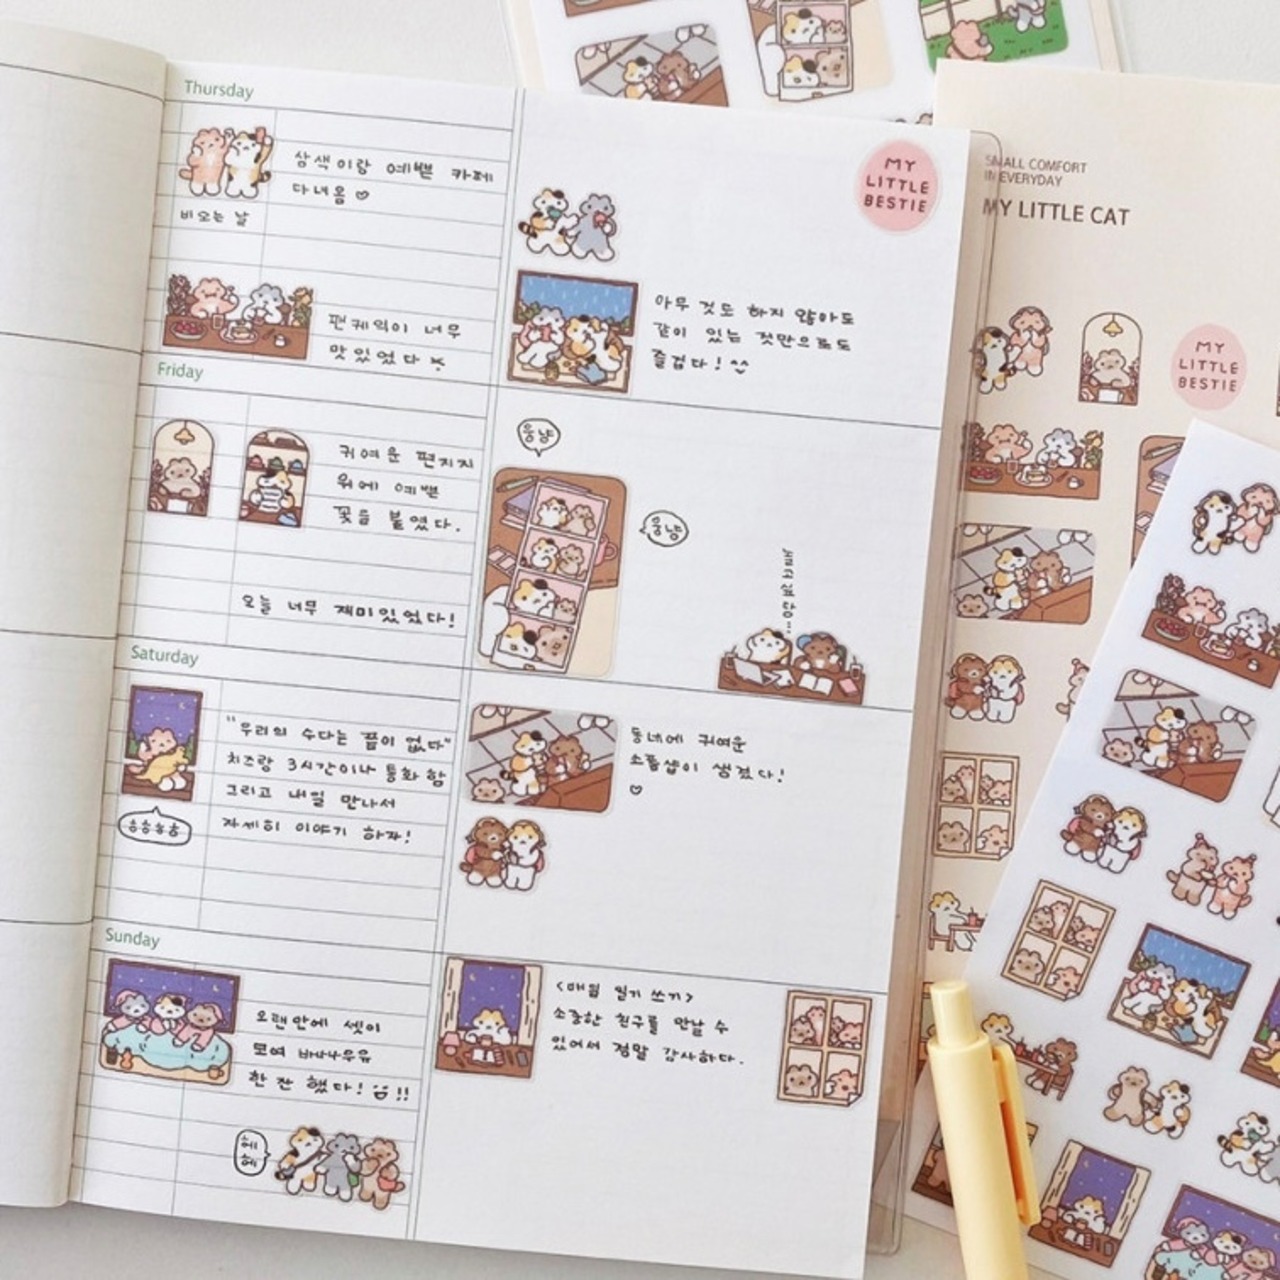 Thursday
삼색이랑 예쁜 카페
다녀옴
비오는 날
팬케익이 너무
맛있었다
MY
LITTLE
BESTIE
아무 것도 하지 않아도
같이 있는 것만으로도
즐겁다!
Friday
귀여운 편지지
위에 예쁜
꽃을 붙였다.
오늘 너무 재미있었다!
웅냥
웅냥
놀고싶당..
Saturday
"우리의 수다는 끝이 없다"
치즈랑 3시간이나 통화 함
그리고 내일 만나서
자세히 이야기 하자!
ㅎㅎㅎㅎ
동네에 귀여운
소품샵이 생겼다!
Sunday
오랜만에 셋이
모여 바나나우유
한 잔 했다! !!
헤
헤
<매일 일기 쓰기>
소중한 친구를 만날 수
있어서 정말 감사하다.
SMALL COMFORT
IN EVERYDAY
MY LITTLE CAT
MY
LITTLE
BESTIE